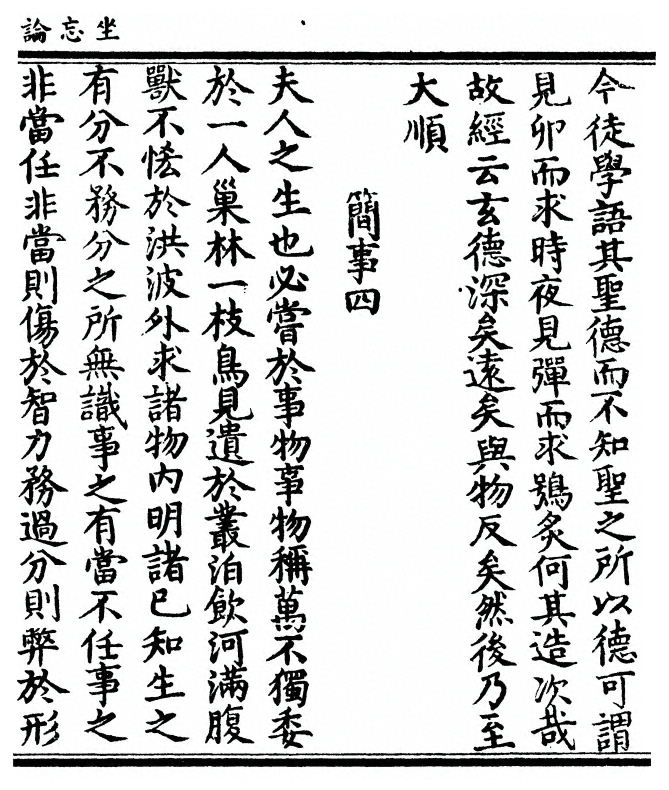 坐忘論
今徒學語其聖德而不知聖之所以德可謂
見卯而求時夜見彈而求鴞炙何其造次哉
故經云玄德深矣遠矣與物反矣然後乃至
大順
簡事四
夫人之生也必嘗於事物事物稱萬不獨委
於一人巢林一枝鳥見遺於叢泊飲河滿腹
獸不恡於洪波外求諸物內明諸已知生之
有分不務分之所無識事之有當不任事之
非當任非當則傷於智力務過分則弊於形